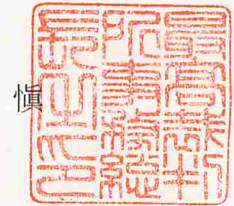 愼
最高裁判
所事務総
長之印